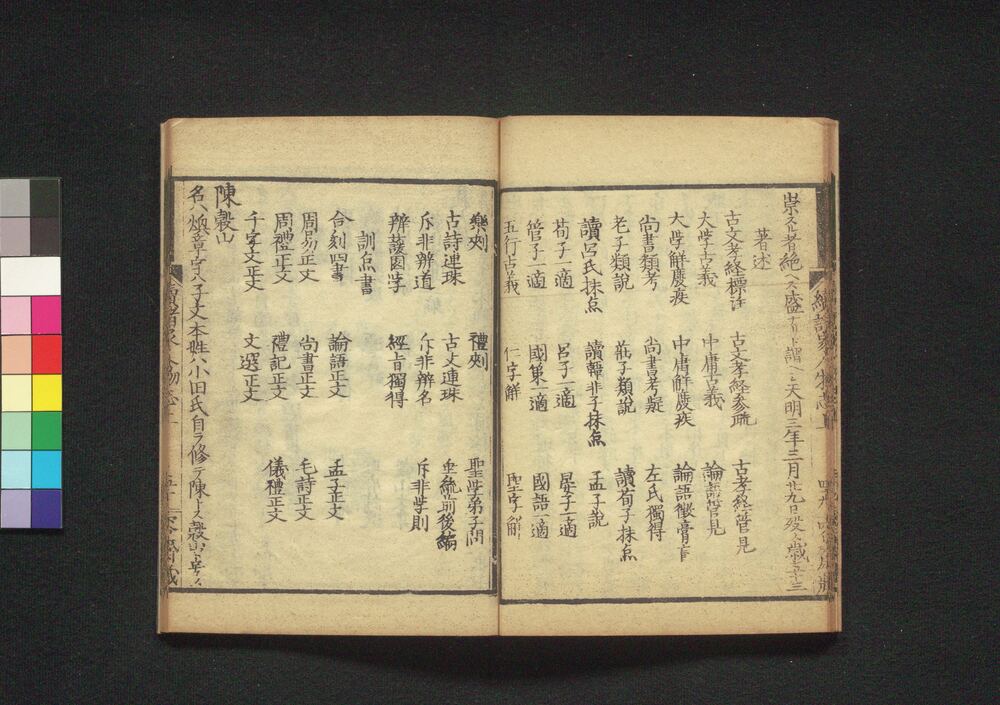 崇スル者絶ヘス盛ナリト謂ヘシ天明三年三月廿九日歿ス歳五十三
著述
古文孝經標注 古文孝經参疏 古孝經管見
大学古義 中庸古義 論語管見
大学解廢疾 中庸解廢疾 論語徴膏肓
尚書類考 尚書考疑 左氏獨得
老子類說 莊子類說 讀荀子抹点
讀呂氏抹点 讀韓非子抹点 孟子說
荀子一適 呂子一適 晏子一適
管子一適 國策一適 國語一適
五行古義 仁字解 聖字解
樂刻 禮刻 聖学弟子問
古詩連珠 古文連珠 垂統前後編
斥非辨道 斥非辨名 斥非学則
辨護園学 經旨獨得
訓点書
合刻四書 論語正文 孟子正文
周易正文 尚書正文 毛詩正文
周禮正文 禮記正文 儀禮正文
千字文正文 文選正文
陳穀山
名ハ煥章字ハ子文本姓ハ小田氏自ラ修テ陳トス穀山ト号ス